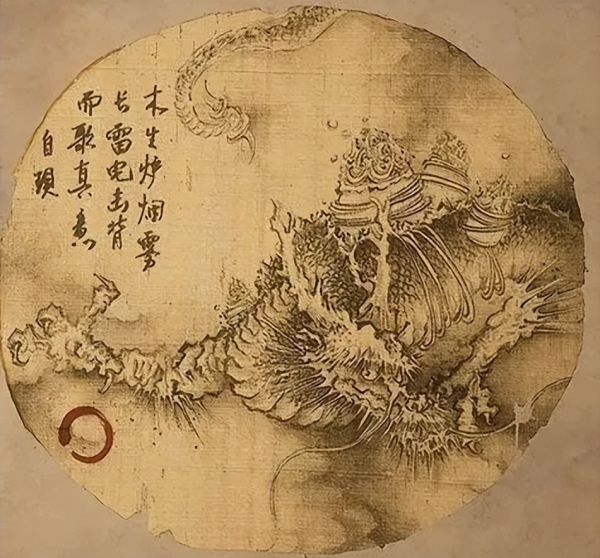 木生炉烟雾
长雷电击背
而歌真意
自题